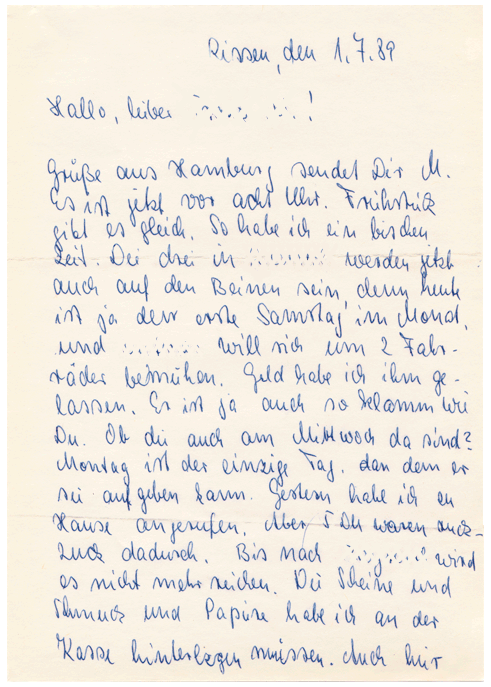 Rissen, den 1.7.89
Hallo, lieber !
Grüße aus Hamburg sendet Dir M.
Es ist jetzt vor acht Uhr. Frühstück
gibt es gleich. So habe ich ein bischen
Zeit. Die drei in werden jetzt
auch auf den Beinen sein, denn heute
ist ja der erste Samstag im Monat,
und will sich um 2 Fahr-
räder bemühen. Geld habe ich ihm ge-
lassen. Er ist ja auch so klamm wie
Du. Ob die auch am Mittwoch da sind?
Montag ist der einzige Tag, dan dem er
sie aufgeben kann. Gestern habe ich zu
Hause angerufen. Aber 5 DM waren ruck-
zuck dadurch. Bis nach wird
es nicht mehr reichen. Die Scheine und
Schmuck und Papiere habe ich an der
Kasse hinterlegen müssen. Auch hier